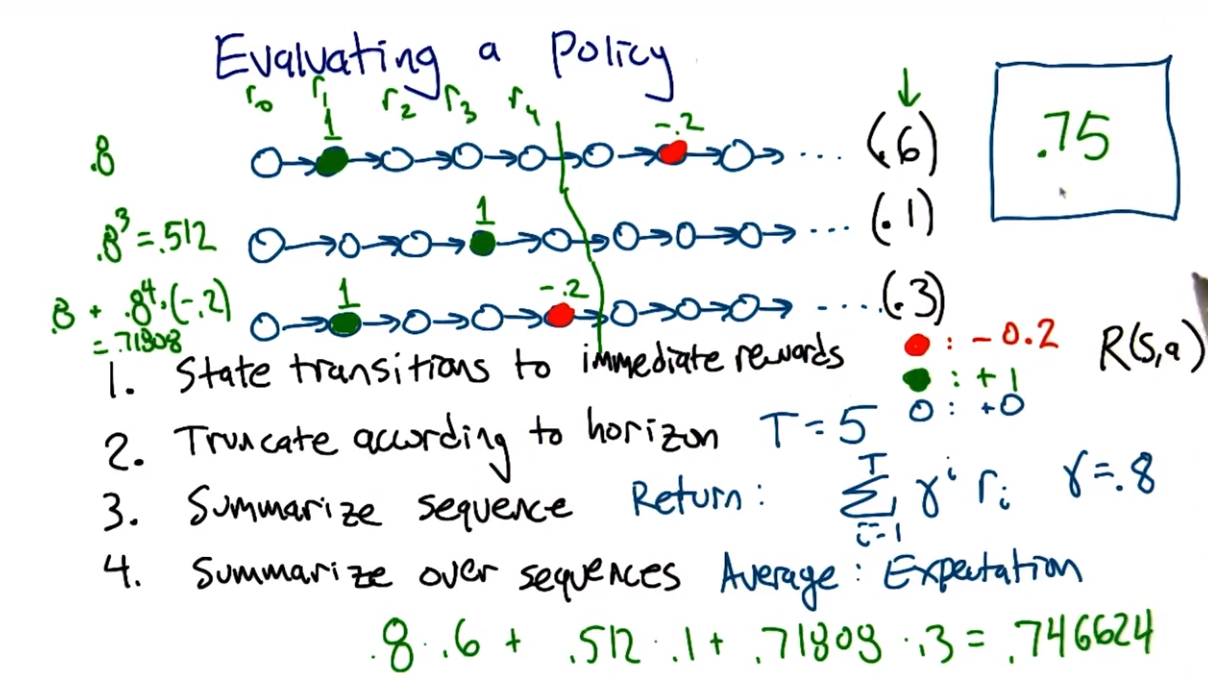 Evaluating a Policy
r₀ r₁ r₂ r₃ r₄
.8 1 -.2 ... (.6) .75
.8³ = .512 1 ... (.1)
.8 + .8⁴·(-.2) 1 -.2 .... (.3)
= .71808
: -0.2 R(s,a)
1. State transitions to immediate rewards : +1
O: +0
2. Truncate according to horizon T=5
3. Summarize sequence Return: Σ_{i=1}^{T} γ^i r_i γ=.8
4. Summarize over sequences Average: Expectation
.8·.6 + .512·.1 + .71808·.3 = .746624